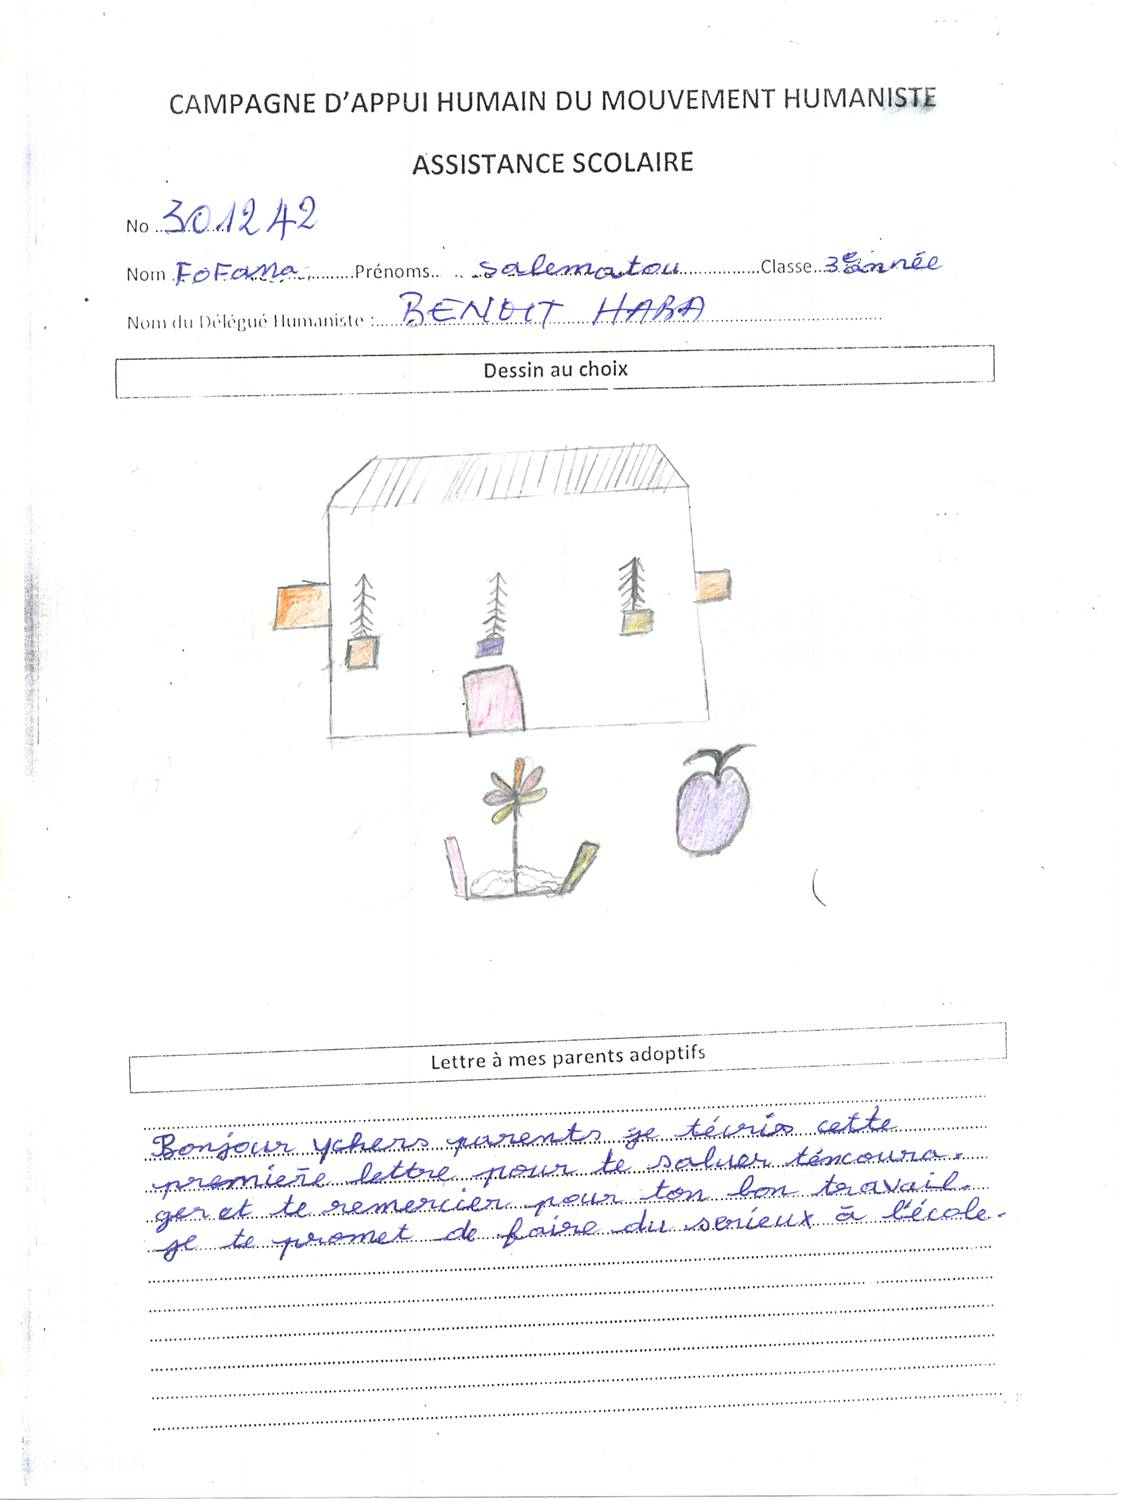 CAMPAGNE D'APPUI HUMAIN DU MOUVEMENT HUMANISTE
ASSISTANCE SCOLAIRE
No 301242
Nom FOFANA Prénoms Salematou Classe 3e année
Nom du Délégué Humaniste : BENOIT HABA
Dessin au choix
Lettre à mes parents adoptifs
Bonjour ychers parents je técris cette
premiēre lettre pour te saluer téncoura.
ger et te remercier pour ton bon travail.
je te promet de faire du serieux ā l'école.